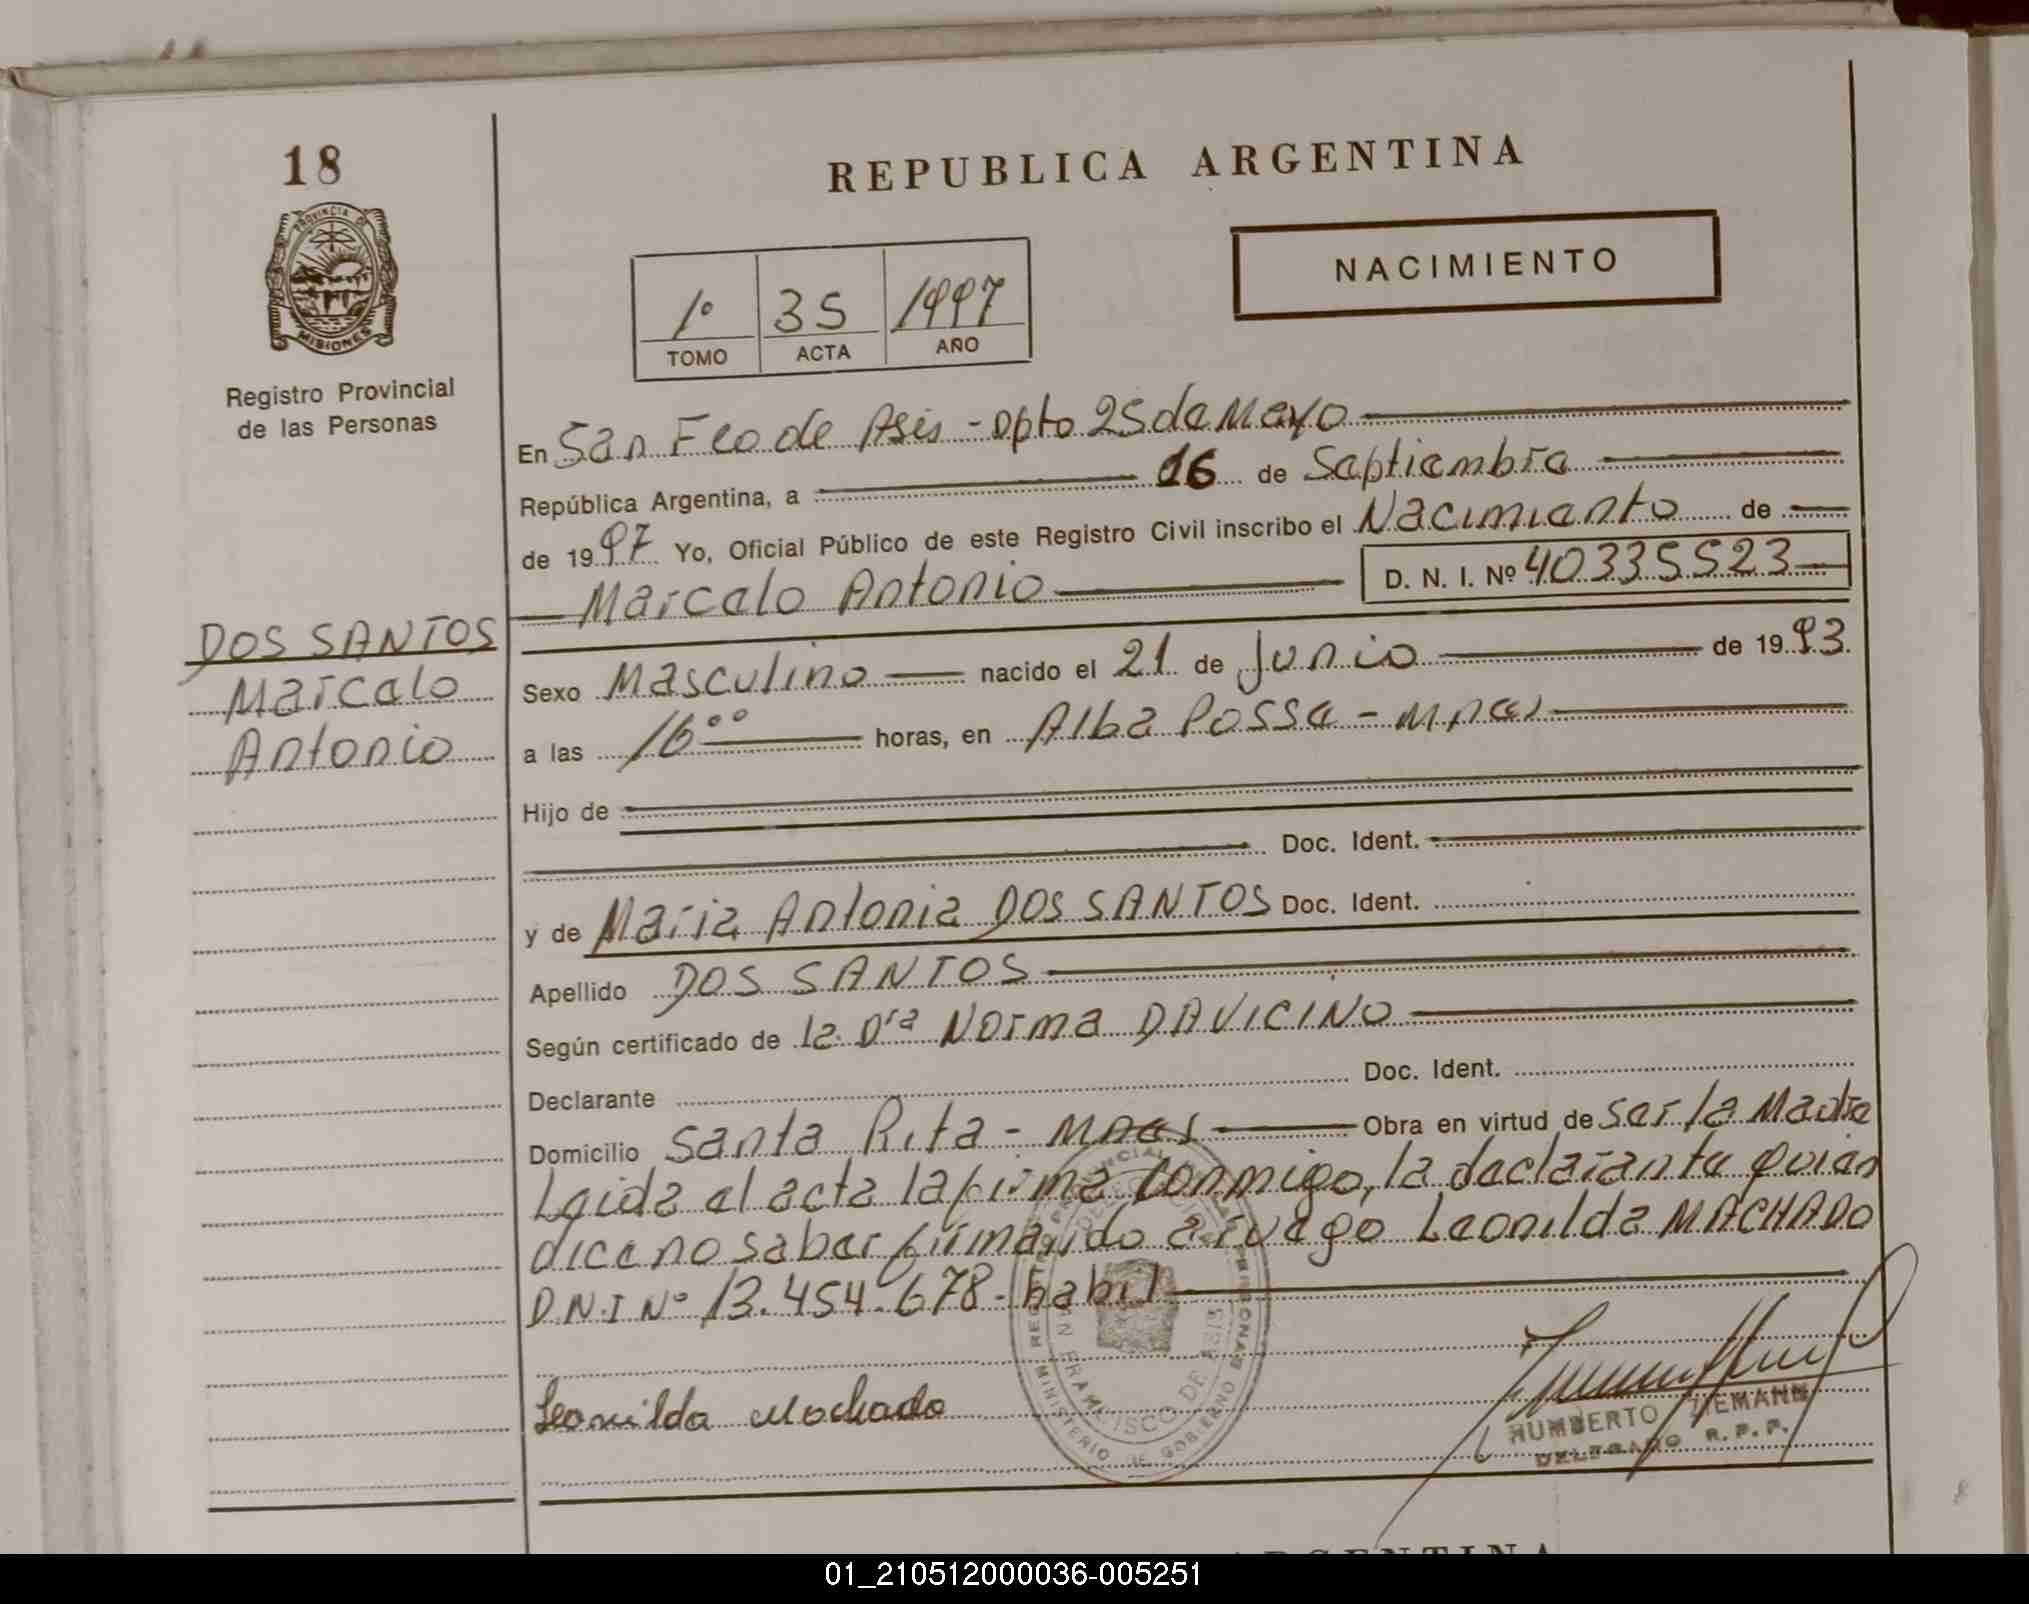 18
REPUBLICA ARGENTINA
PROVINCIA DE
MISIONES
NACIMIENTO
1º 35 1997
TOMO ACTA AÑO
Registro Provincial
de las Personas
En San Fco de Asis - Dpto 25 de Mayo
República Argentina, a 16 de Septiembre
de 1997 Yo, Oficial Público de este Registro Civil inscribo el Nacimiento de
Marcelo Antonio D. N. I. Nº 40335523
DOS SANTOS
Marcelo
Antonio
Sexo Masculino nacido el 21 de Junio de 1993.
a las 16°° horas, en Alba Posse - Mnes
Hijo de
Doc. Ident.
y de Maria Antonia DOS SANTOS Doc. Ident.
Apellido DOS SANTOS
Según certificado de la Dra Norma DAVICINO
Declarante Doc. Ident.
Domicilio Santa Rita - Mnes Obra en virtud de ser la Madre
Leida el acta la firma conmigo, la declarante quien
dice no saber firmar, do a ruego Leonilda MACHADO
D.N.I Nº 13.454.678 - habil
Leonilda Machado
HUMBERTO ZIEMANN
DELEGADO R. P. P.
SAN FRANCISCO DE ASIS
MINISTERIO DE GOBIERNO
ARGENTINA
01_210512000036-005251